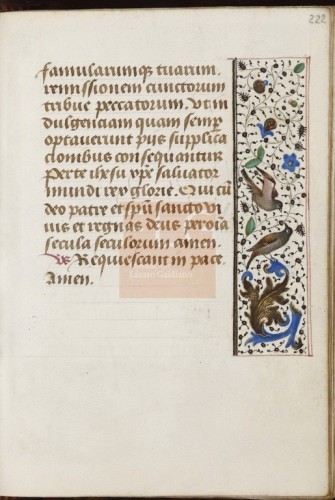 222
famularumq; tuarum.
remissionem cunctorum
tribue peccatorum. Vt in
dulgenciam quam semper
optauerunt pijs supplica
cionibus consequantur
Per te ihesu xpe saluator
mundi rex glorie. Qui cū
deo patre et spū sancto vi
uis et regnas deus per oīa
secula seculorum amen.
vs Requiescant in pace.
Amen.
Lázaro Galdiano